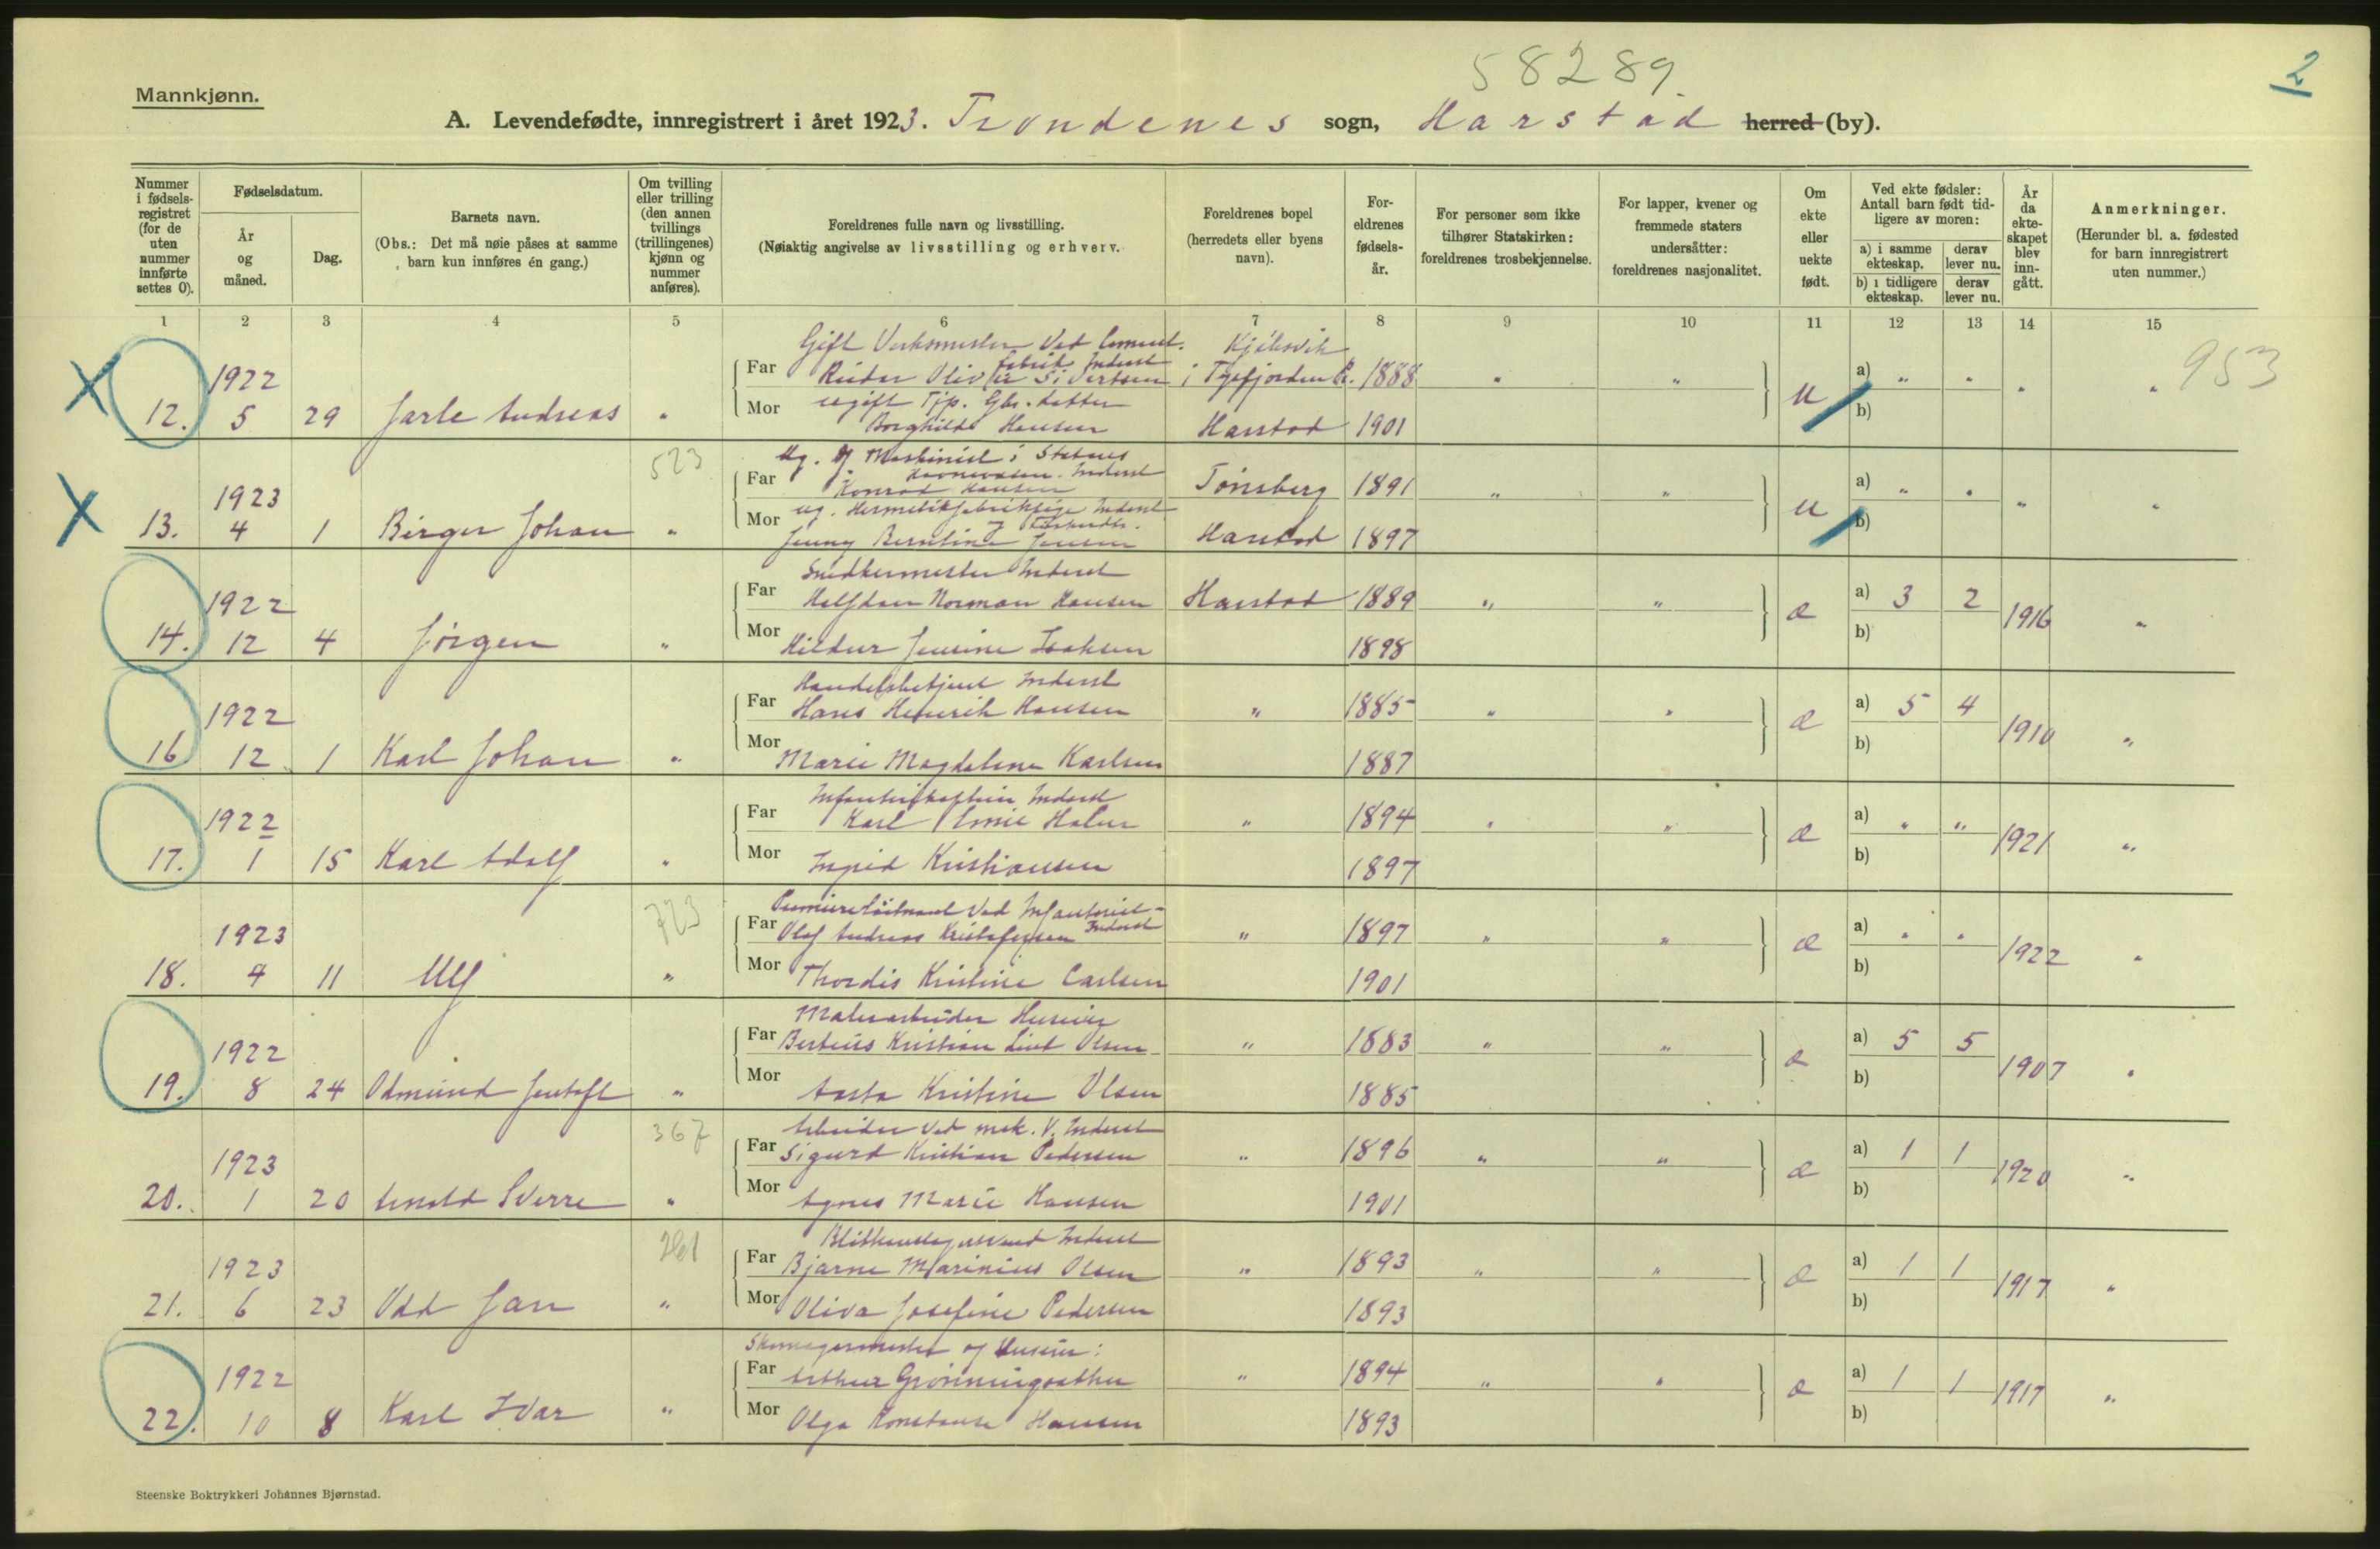 58289.
2
Mannkjønn.
A. Levendefødte, innregistrert i året 1923. Trondenes sogn, Harstad herred (by).
Nummer i fødselsregistret (for de uten nummer innførte settes 0).
Fødselsdatum.
År og måned.
Dag.
Barnets navn.
(Obs.: Det må nøie påses at samme barn kun innføres én gang.)
Om tvilling eller trilling (den annen tvillings (trillingenes) kjønn og nummer anføres).
Foreldrenes fulle navn og livsstilling.
(Nøiaktig angivelse av livsstilling og erhverv.
Foreldrenes bopel (herredets eller byens navn).
Foreldrenes fødselsår.
For personer som ikke tilhører Statskirken: foreldrenes trosbekjennelse.
For lapper, kvener og fremmede staters undersåtter: foreldrenes nasjonalitet.
Om ekte eller uekte født.
Ved ekte fødsler: Antall barn født tidligere av moren:
a) i samme ekteskap. derav lever nu.
b) i tidligere ekteskap. derav lever nu.
År da ekteskapet blev inngått.
Anmerkninger.
(Herunder bl. a. fødested for barn innregistrert uten nummer.)
1 2 3 4 5 6 7 8 9 10 11 12 13 14 15
Gift Verksmester Ved Cement. Kjøbsvik
fabrik Inderst
1922 Far Reidar Oliver Sivertsen i Tysfjorden 1888 " " a) " " " " 953
Mor ugift Tjp. Gbr. datter u b)
12. 5 29 Jarle Andreas " Borghild Hansen Harstad 1901
523 Ug. Maskinist i Statens
Havnevæsen. Inderst
1923 Far Konrad Hansen Tønsberg 1891 " " a) " " " "
Mor ug. Hermetikfabrikpige Inderst u b)
13. 4 1 Birger Johan " Jenny Berntine Jensen Harstad 1897
Snedkermester Inderst
1922 Far Halfdan Norman Hansen Harstad 1889 " " æ a) 3 2 1916 "
14. 12 4 Jørgen " Mor Hildur Jensine Isaksen 1898 b)
Handelsbetjent Inderst
1922 Far Hans Henrik Hansen " 1885 " " æ a) 5 4 1910 "
16 12 1 Karl Johan " Mor Marie Magdalena Karlsen 1887 b)
Infanterikaptein Inderst
1922 Far Karl Holm " 1894 " " æ a) " " 1921 "
17. 1 15 Karl Adolf " Mor Ingrid Kristiansen 1897 b)
723 Premierløitnant Ved Infanteriet-
Inderst
1923 Far Olaf Andreas Kristofersen " 1897 " " æ a) " " 1922 "
18. 4 11 Ulf " Mor Thordis Kristine Carlsen 1901 b)
Malerarbeider Huseier
1922 Far Berteus Kristian Olsen " 1883 " " æ a) 5 5 1907 "
19. 8 24 Odmund Jentoft " Mor Aasta Kristine Olsen 1885 b)
367 Arbeider Ved mek. V. Inderst
1923 Far Sigurd Kristian Pedersen " 1896 " " æ a) 1 1 1920 "
20. 1 20 Arnold Sverre " Mor Agnes Marie Hansen 1901 b)
261 Blikkenslagersvend Inderst
1923 Far Bjarne Marinius Olsen " 1893 " " æ a) 1 1 1917 "
21. 6 23 Odd Jan " Mor Oliva Josefine Pedersen 1893 b)
Skomagermester og Huseier:
1922 Far Arthur Grønningsæther " 1894 " " æ a) 1 1 1917 "
22. 10 8 Karl Ivar " Mor Olga Konstanse Hansen 1893 b)
Steenske Boktrykkeri Johannes Bjørnstad.